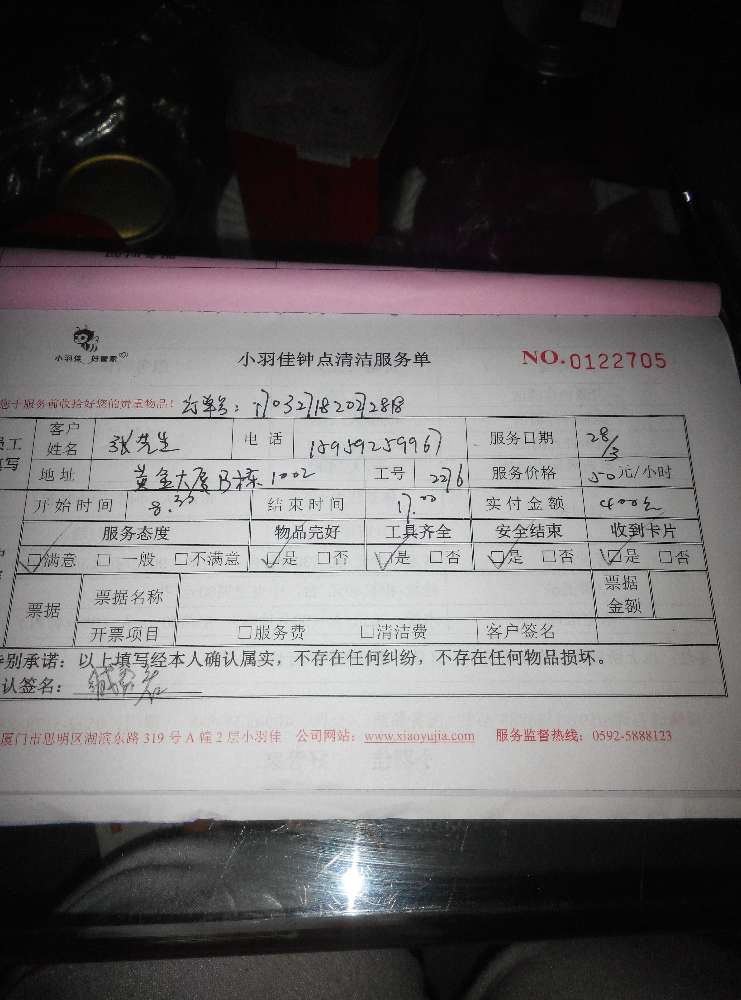 小羽佳 好管家
小羽佳钟点清洁服务单
NO.0122705
您于服务前收拾好您的贵重物品! 订单号:
客户姓名 张先生 电话 15959259967 服务日期 28/3
地址 黄金大厦B栋1002 工号 2276 服务价格 50元/小时
开始时间 8.30 结束时间 17.00 实付金额 400元
服务态度 物品完好 工具齐全 安全结束 收到卡片
☑满意 □一般 □不满意 ☑是 □否 ☑是 □否 ☑是 □否 ☑是 □否
票据 票据名称 票据金额
开票项目 □服务费 □清洁费 客户签名
特别承诺:以上填写经本人确认属实,不存在任何纠纷,不存在任何物品损坏。
认签名:
厦门市思明区湖滨东路319号A幢2层小羽佳 公司网站:www.xiaoyujia.com 服务监督热线:0592-5888123